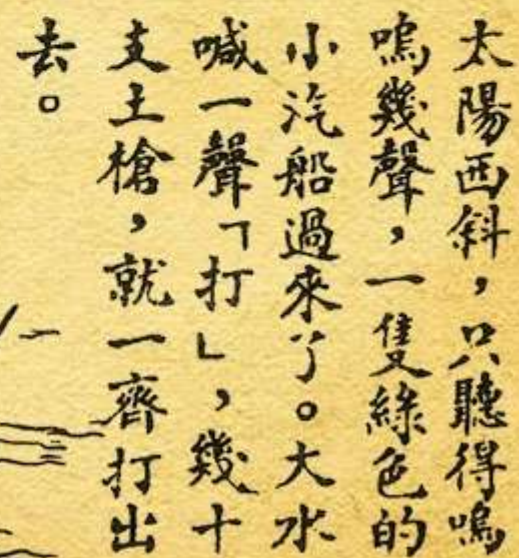 太陽西斜，只聽得嗚
嗚幾聲，一隻綠色的
小汽船過來了。大水
喊一聲「打」，幾十
支土槍，就一齊打出
去。